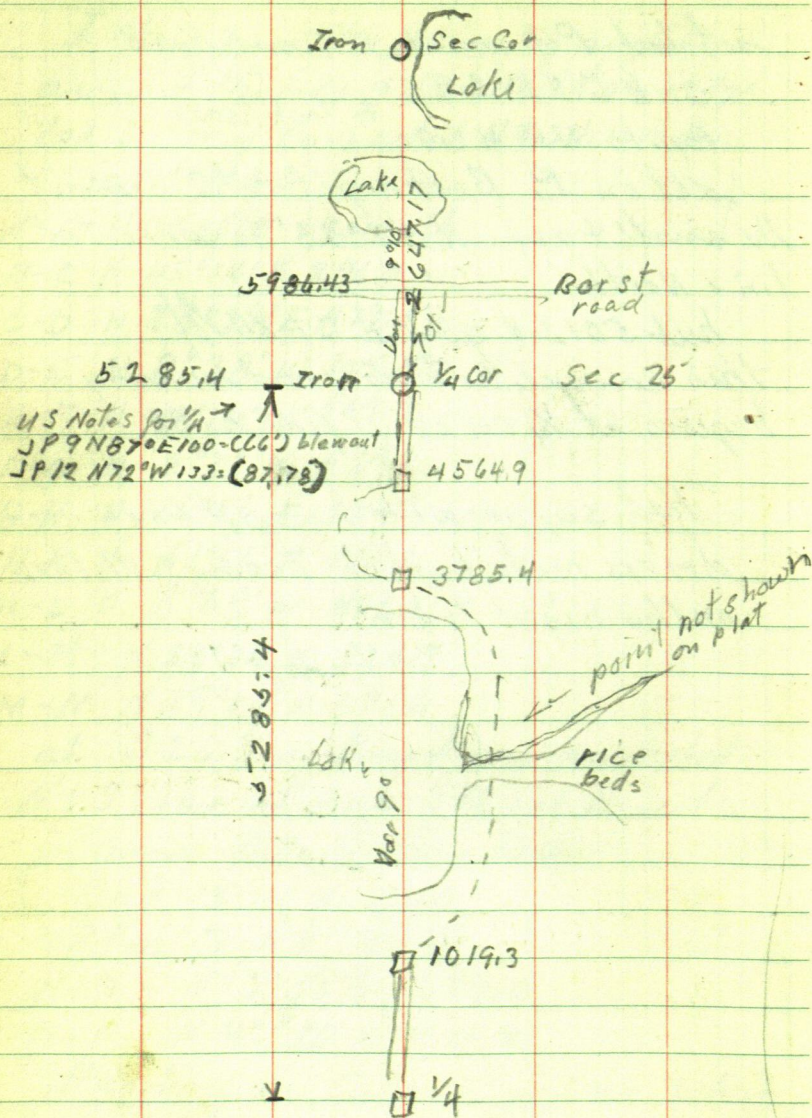 Iron Sec Cor
Lake
Lake
2647.17
5986.43
Borst
road
701
5285.4 Iron 1/4 Cor Sec 25
US Notes for 1/4
JP 9 N87°E100=(66') blewout
JP 12 N72°W 133=(87.78)
4564.9
3785.4
point not shown
on plat
5285.4
Lake
rice
beds
Var 9°
1019.3
1/4